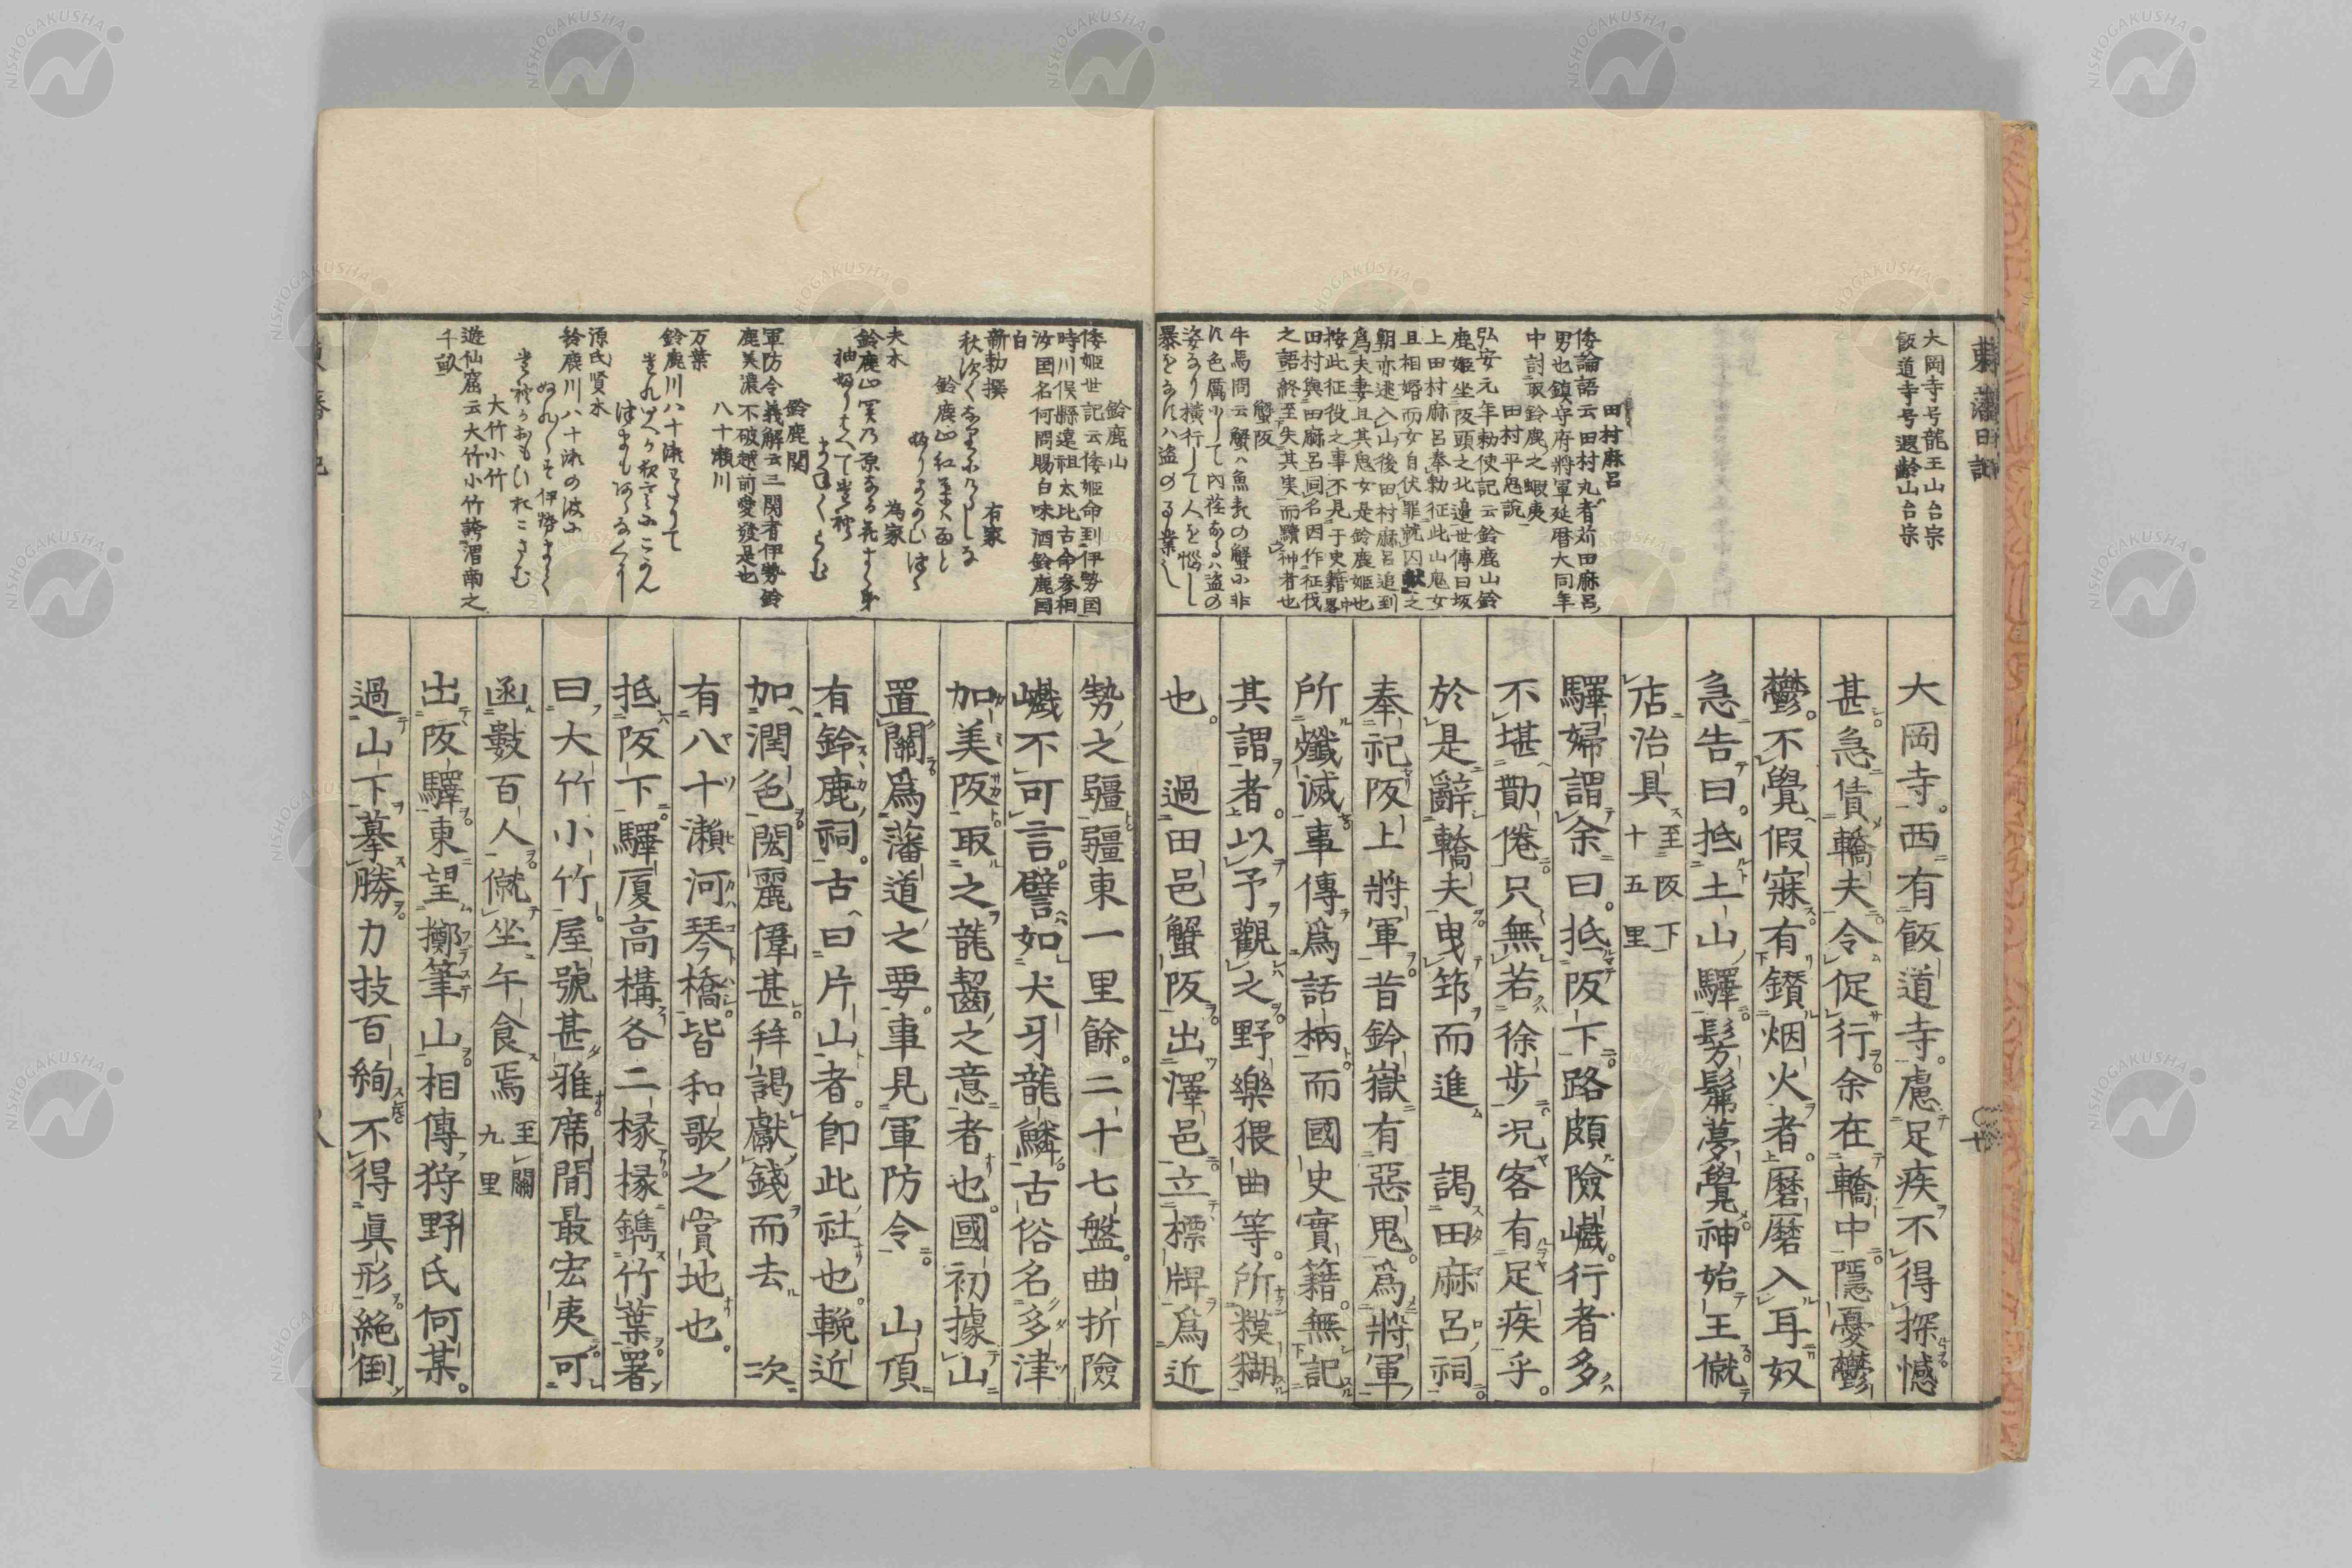 東藩日記
大岡寺号龍王山台宗
飯道寺号遐齡山台宗
田村麻呂
倭論語云田村丸者苅田麻呂
男也鎮守府将軍延暦大同年
中討取鈴鹿之蝦夷
田村平鬼説
弘安元年勅使記云鈴鹿山鈴
鹿姫坐阪頭之北邉世傳曰坂
上田村麻呂奉勅征此山鬼女
且相婚而女自伏罪就囚献之
朝亦逃入山後田村麻呂追到
爲夫妻且其鬼女是鈴鹿姫也
按此征役之事不見于史籍中畧
田村與田麻呂同名因作征伐
之語終至失其実而黷神者也
蟹阪
牛馬問云蟹ハ魚表の蟹小非
に色厲して内荏あるハ盗の
姿なり横行して人を惱し
暴をなすハ盗のる業し
大岡寺。西有飯道寺。慮足疾不得探憾
甚。急債轎夫令促行余在轎中隱憂鬱
鬱。不覺假寐有鑽烟火者。磨磨入耳奴
急告曰。抵土山驛髣髴夢覺神始王僦
店治具至阪下十五里
驛婦謂余曰。抵阪下路頗險巇。行者多
不堪勩倦只無若徐步況客有足疾乎。
於是辭轎夫曳筇而進　謁田麻呂祠
奉祀阪上將軍昔鈴嶽有惡鬼。爲將軍
所殲滅事傳爲話柄而國史實籍。無記
其謂者。以予觀之野樂猥曲等。所糢糊
也。　過田邑蟹阪出澤邑立標牌爲近
鈴鹿山
倭姫世記云倭姫命到伊勢国
時川俣縣遠祖太比古命参相
汝国名何問賜白味酒鈴鹿国
白
新勅撰　有家
秋深く
鈴鹿山紅葉ハ
夫木　為家
鈴鹿山
鈴鹿関
軍防令義解云三関者伊勢鈴
鹿美濃不破越前愛發是也
八十瀬川
万葉
鈴鹿川八十瀬
源氏賢木
鈴鹿川八十瀬の波に
ぬれぬれす伊勢まて
大竹小竹
遊仙窟云大竹小竹誇渭南之
千畝
勢之疆疆東一里餘。二十七盤。曲折險
巇不可言。譬如犬牙龍鱗古俗名多津
加美阪取之龍齧之意者也。國初據山
置關爲藩道之要。事見軍防令。　山頂
有鈴鹿祠。古曰片山者。卽此社也。輓近
加潤色閎麗偉甚。拜謁獻錢而去　次
有八十瀨河琴橋皆和歌之賞地也。
抵阪下驛厦高構各二椽椽鐫竹葉署
曰大竹小竹屋號甚雅席間最宏夷可
函數百人僦坐午食焉至關九里
出阪驛東望擲筆山相傳狩野氏何某。
過山下摹勝力技百絢不得眞形絶倒